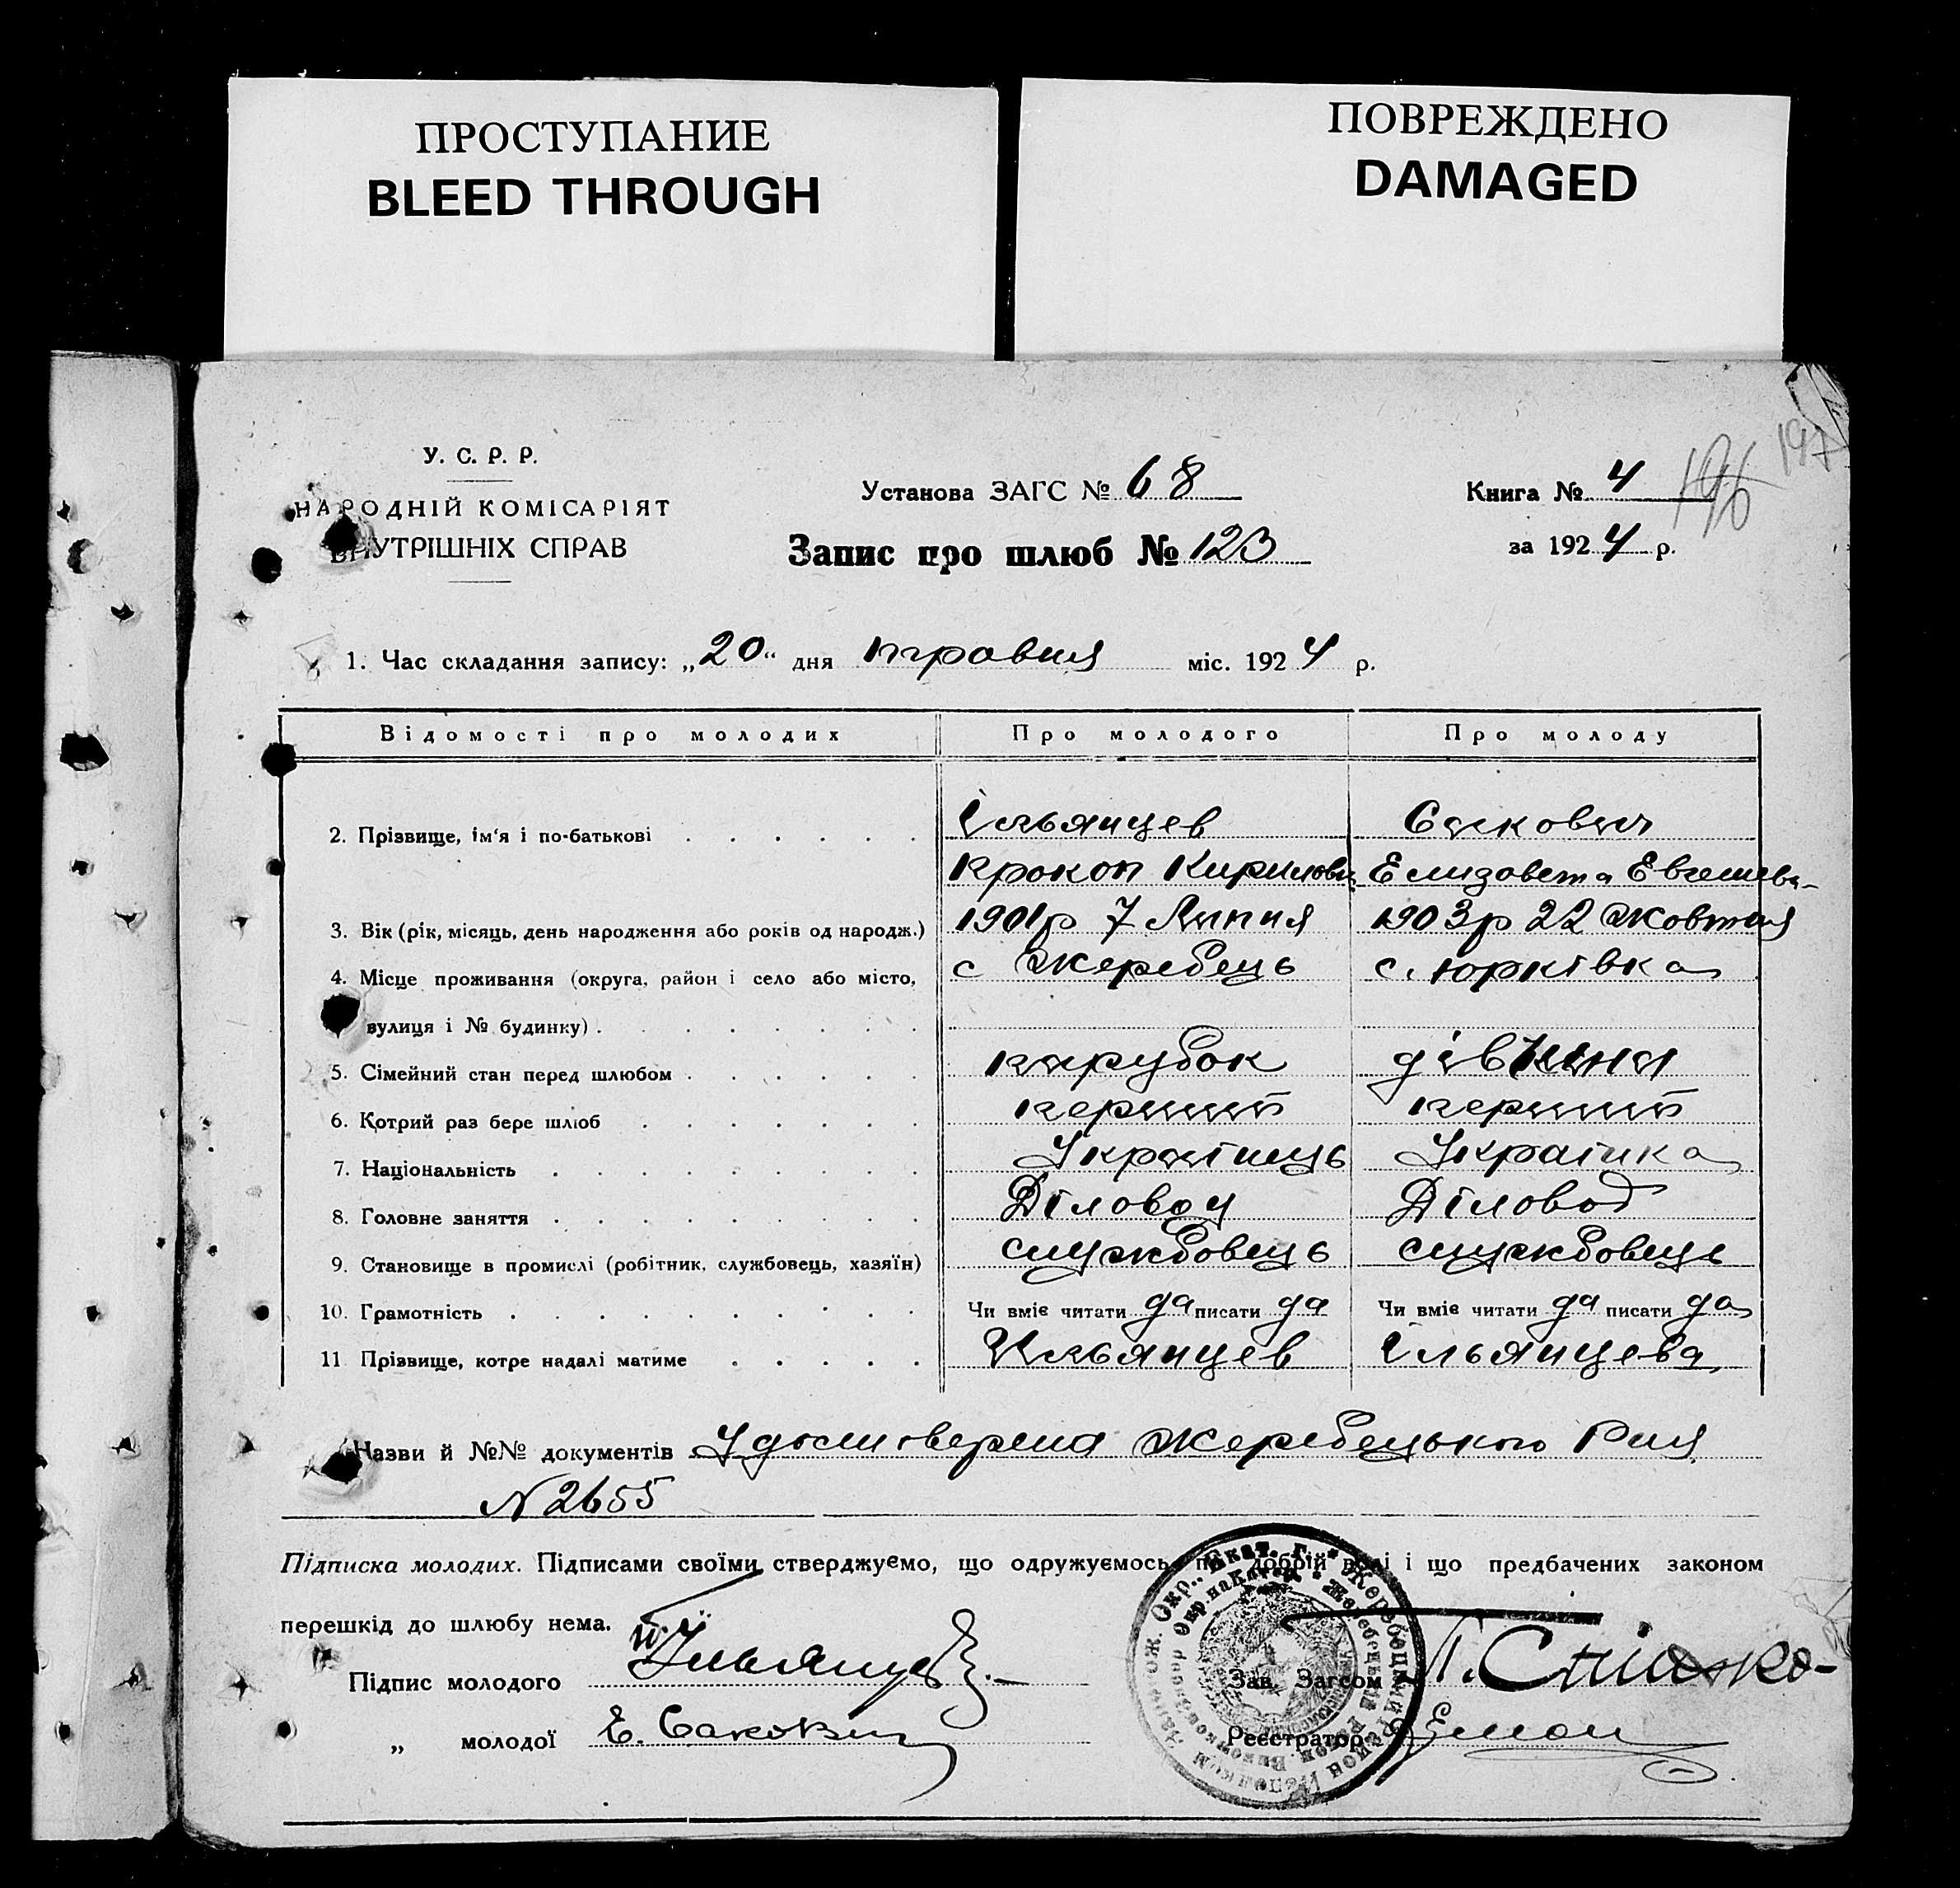 ПРОСТУПАНИЕ
BLEED THROUGH
ПОВРЕЖДЕНО
DAMAGED
197
196
У. С. Р. Р.
НАРОДНІЙ КОМІСАРІЯТ
ВНУТРІШНІХ СПРАВ
Установа ЗАГС № 68
Запис про шлюб № 123
Книга № 4
за 1924 р.
1. Час складання запису: „20“ дня травня міс. 1924 р.
Відомості про молодих Про молодого Про молоду
2. Прізвище, ім'я і по-батькові Ільянцев Сакович
Прокоп Кирилович Елизовета Евгениева
3. Вік (рік, місяць, день народження або років од народж.) 1901р 7 Липня 1903р 22 Жовтня
4. Місце проживання (округа, район і село або місто, с Жеребець с. Юрківка
вулиця і № будинку)
5. Сімейний стан перед шлюбом парубок дівчина
6. Котрий раз бере шлюб перший перший
7. Національність Українець Українка
8. Головне заняття Діловод Діловод
9. Становище в промислі (робітник, службовець, хазяїн) службовець службовець
10. Грамотність Чи вміє читати да писати да Чи вміє читати да писати да
11 Прізвище, котре надалі матиме Ильянцев Ільянцева
Назви й №№ документів Удостоверена Жеребецького
N 2655
Підписка молодих. Підписами своїми стверджуємо, що одружуємось по добрій волі і що предбачених законом
перешкід до шлюбу нема.
Підпис молодого Ильянцев
„ молодої Е. Сакович
Зав. Загсом
Реєстратор